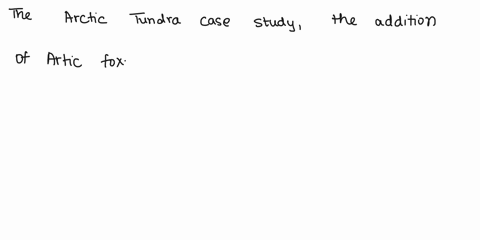 The Arctic Tundra case study, the addition
of Artic fox